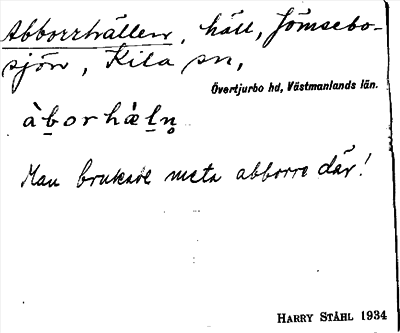 Abborrhällen, häll, Jömsebo-
sjön, Kila sn,
Övertjurbo hd, Västmanlands län.
àb̲orhæ̀l̲n̥
Man brukade meta abborre där!
HARRY STÅHL 1934